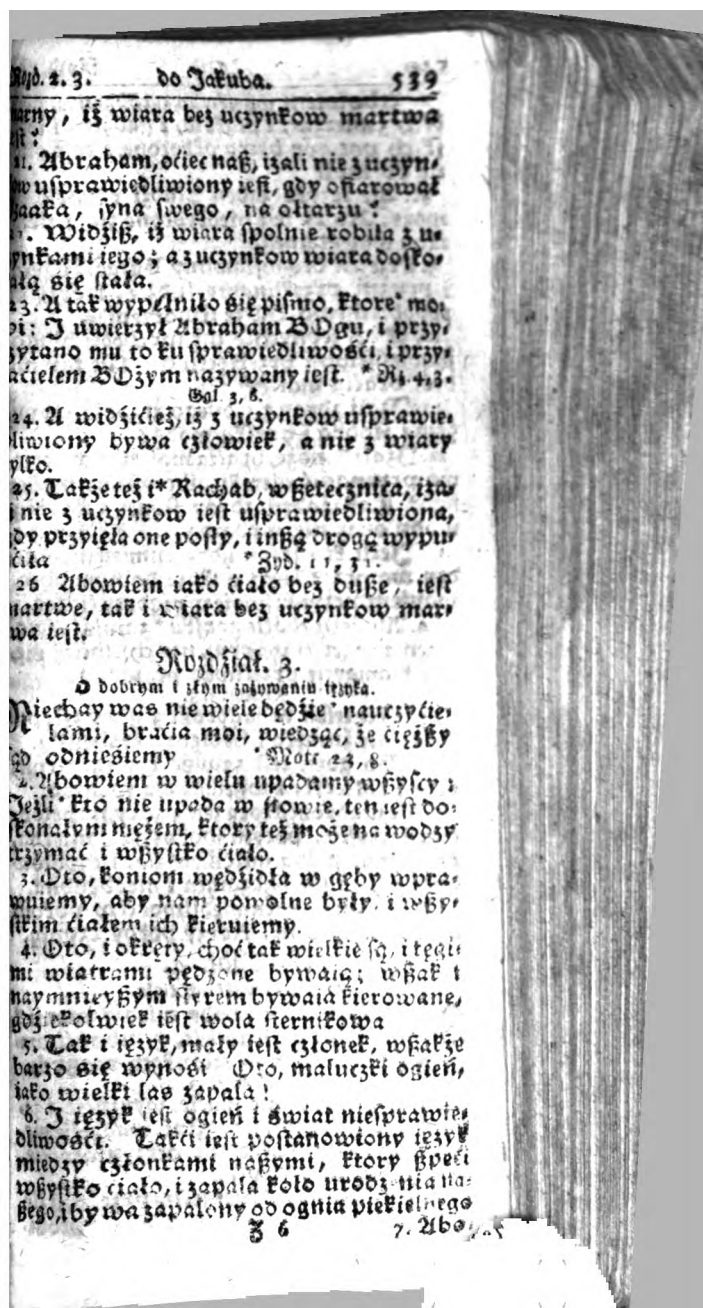 Rozd. 2. 3. do Jakuba. 539
marny, iż wiara bez uczynkow martwa
iest?
21. Abraham, oćiec naß, izali nie z uczyn-
kow usprawiedliwiony iest, gdy ofiarował
Izaaka, syna swego, na ołtarzu?
Widźiß, iż wiara spolnie robiła z u-
czynkami iego; a z uczynkow wiara dosko-
nałą się stała.
23. A tak wypełniło się pismo, ktore* mo-
wi: I uwierzył Abraham BOgu, i przy-
czytano mu to ku sprawiedliwośći, i przy-
iaćielem BOżym nazywany iest. * Rz. 4, 3.
Gal. 3, 6.
24. A widźićież, iż z uczynkow usprawie-
dliwiony bywa człowiek, a nie z wiary
tylko.
25. Także też i* Rachab, wßetecznica, iza-
li nie z uczynkow iest usprawiedliwiona,
gdy przyięła one posły, i inßą drogą wypu-
śćiła * Żyd. 11, 31.
26 Abowiem iako ćiało bez duße, iest
martwe, tak i wiara bez uczynkow mar-
twa iest.
Rozdźiał. 3.
O dobrym i złym zażywaniu ięzyka.
Niechay was nie wiele będźie* nauczyćie-
lami, braćia moi, wiedząc, że ćiężßy
sąd odnieśiemy * Matt 23, 8.
2. Abowiem w wielu upadamy wßyscy:
Jeżli* kto nie upada w słowie, ten iest do-
skonałym mężem, ktory też może na wodzy
trzymać i wßystko ćiało.
3. Oto, koniom wędźidła w gęby wpra-
wuiemy, aby nam powolne były, i wßy-
stkim ćiałem ich kieruiemy.
4. Oto, i okręty, choć tak wielkie są, i tęgi-
mi wiatrami pędzone bywaią; wßak i
naymnieyßym styrem bywaią kierowane,
gdźiekolwiek iest wola sternikowa
5. Tak i ięzyk, mały iest członek, wßakże
barzo się wynośi Oto, maluczki ogień,
iako wielki las zapala!
6. I ięzyk iest ogień i świat niesprawie-
dliwośći. Takći iest postanowiony ięzyk
miedzy członkami naßymi, ktory ßpeći
wßystko ćiało, i zapala koło urodzenia na-
ßego, i bywa zapalony od ognia piekielnego
Z 6 7. Abo-